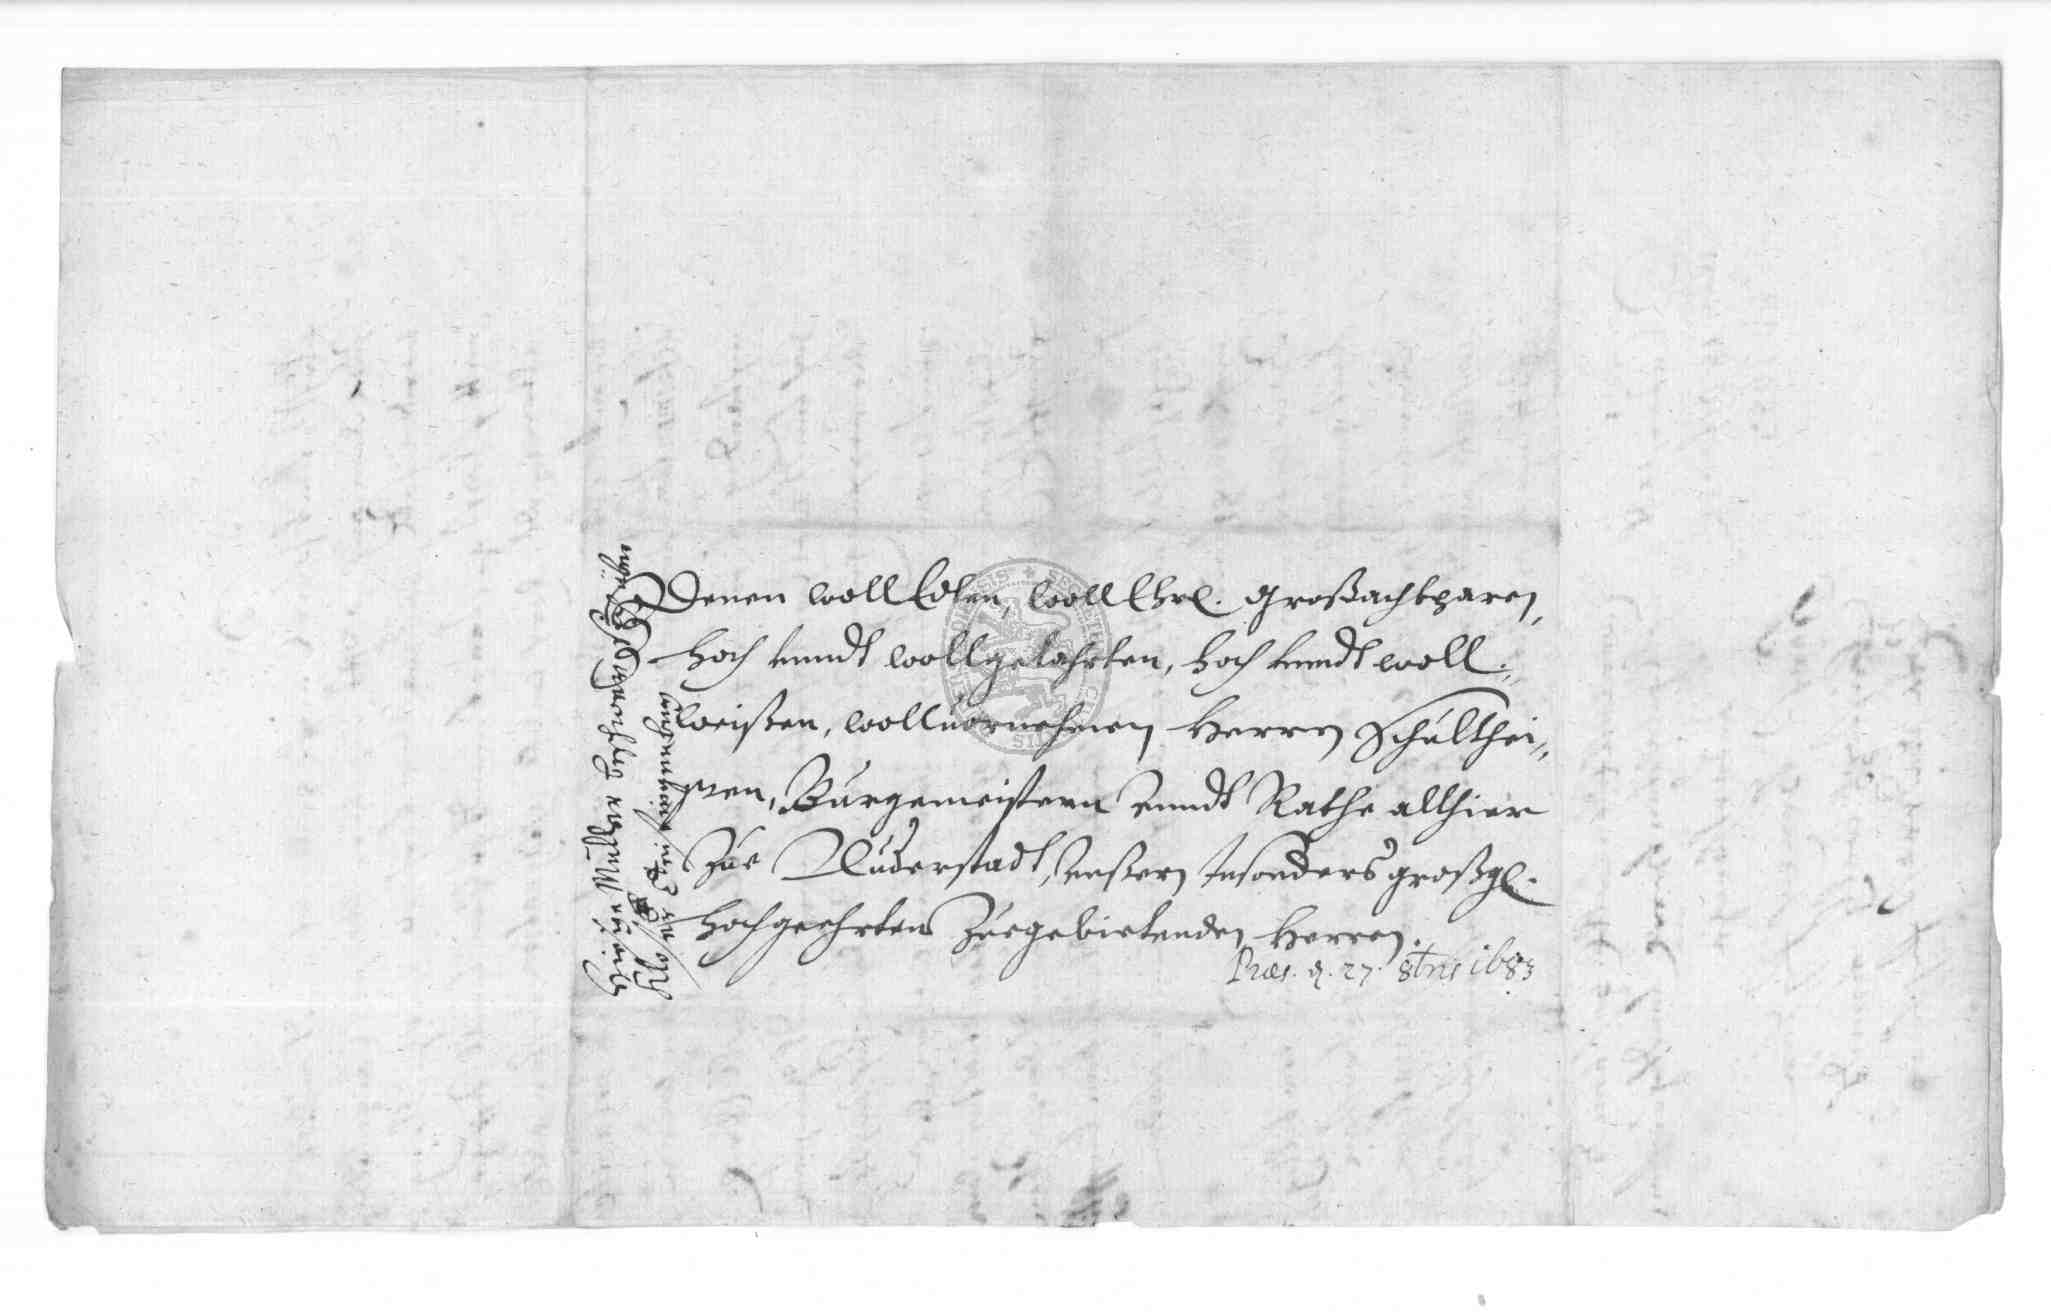 Denen woll Edlen, woll Ehrl. Großachtparen,
hoch unndt wollgelahrten, hoch unndt woll„
weißen, wolluornehmen Herren Schulthei„
ßen, Burgemeistern unndt Rathe allhier
Zue Duderstadt, unßern Insonders großgl.
hochgeehrten Zuegebietenden Herren.
Præs. d. 27. 8bris 1683